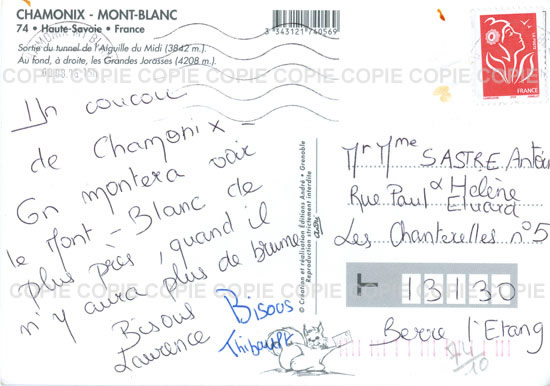 CHAMONIX - MONT-BLANC
74 • Haute-Savoie • France
Sortie du tunnel de l'Aiguille du Midi (3842 m.).
Au fond, à droite, les Grandes Jorasses (4208 m.).
3 343121 740569
COPIE COPIE COPIE COPIE COPIE COPIE COPIE
Un coucou
de Chamonix -
On montera voir
le Mont-Blanc de
plus près, quand il
n'y aura plus de brume !
Bisous
Laurence
Bisous
Thibault
© Création et réalisation Éditions André • Grenoble
Reproduction strictement interdite
LA POSTE
FRANCE
Mr Mme SASTRE Antoine
& Hélène
Rue Paul Eluard
Les Chanterelles n°5
13130
Berre l'Etang